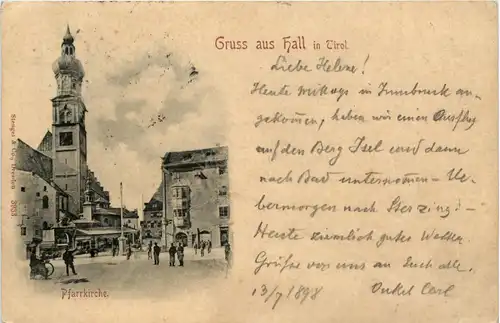 Gruss aus Hall in Tirol.
Liebe Helene!
Heute Mittags in Innsbruck an-
gekommen, haben wir einen Ausflug
auf den Berg Isel und dann
nach Bad unternommen – Ue-
bermorgen nach Sterzing! –
Heute ziemlich gutes Wetter.
Grüsse von uns an Euch alle.
13/7 1898 Onkel Carl
Stengel & Co., Dresden 3031
Pfarrkirche.